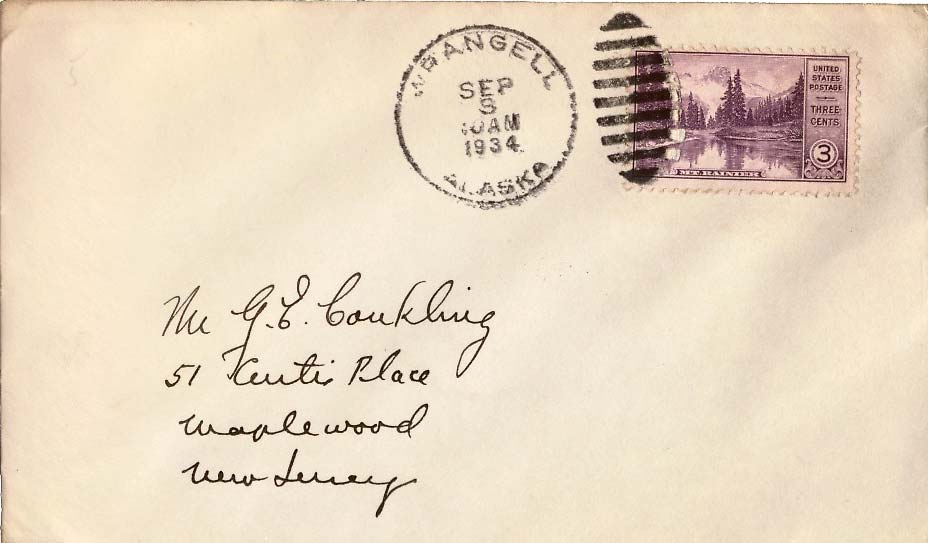 WRANGELL
SEP
S
10AM
1934
ALASKA
UNITED
STATES
POSTAGE
THREE
CENTS
3
MT. RAINIER
Mr G.E. Conkling
51 Kentis Place
Maplewood
New Jersey